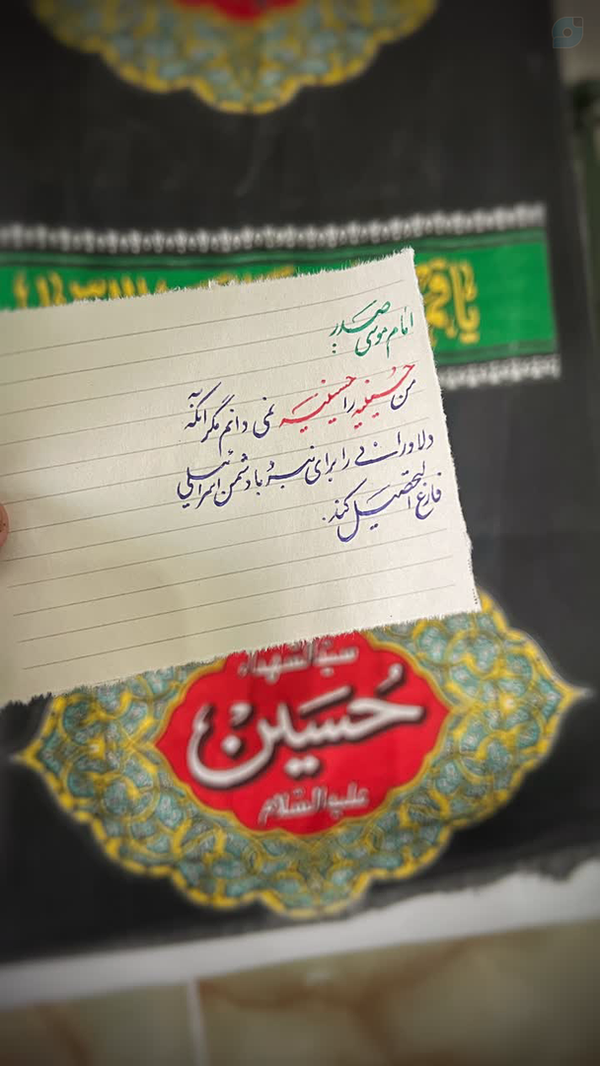 امام موسی صدر:
من حسینیه را حسینیه نمی دانم مگر آنکه
دلاورانی را برای نبرد با دشمن اسرائیلی
فارغ التحصیل کند.
سیدالشهداء
حسین
علیه السلام